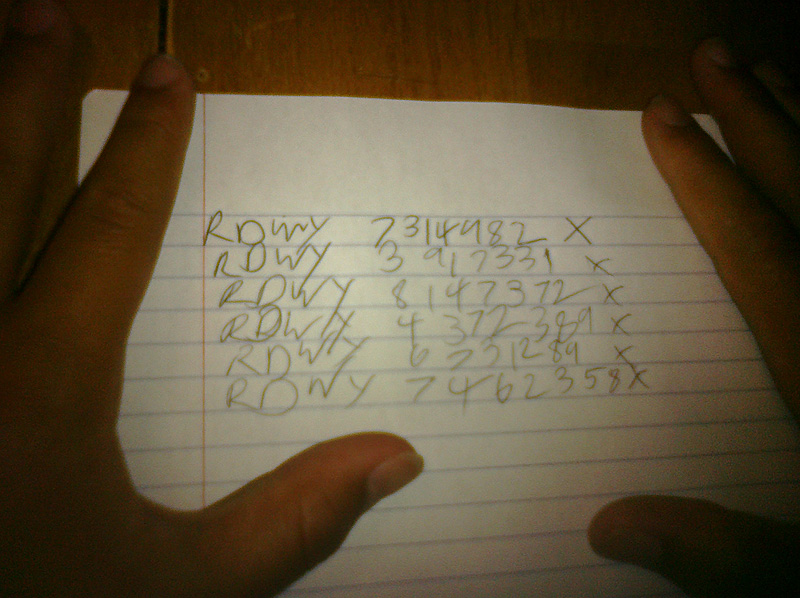 RDWY 7314982 X
RDWY 3917331 X
RDWY 8147372 X
RDWY 4372389 X
RDWY 6731289 X
RDWY 7462358X